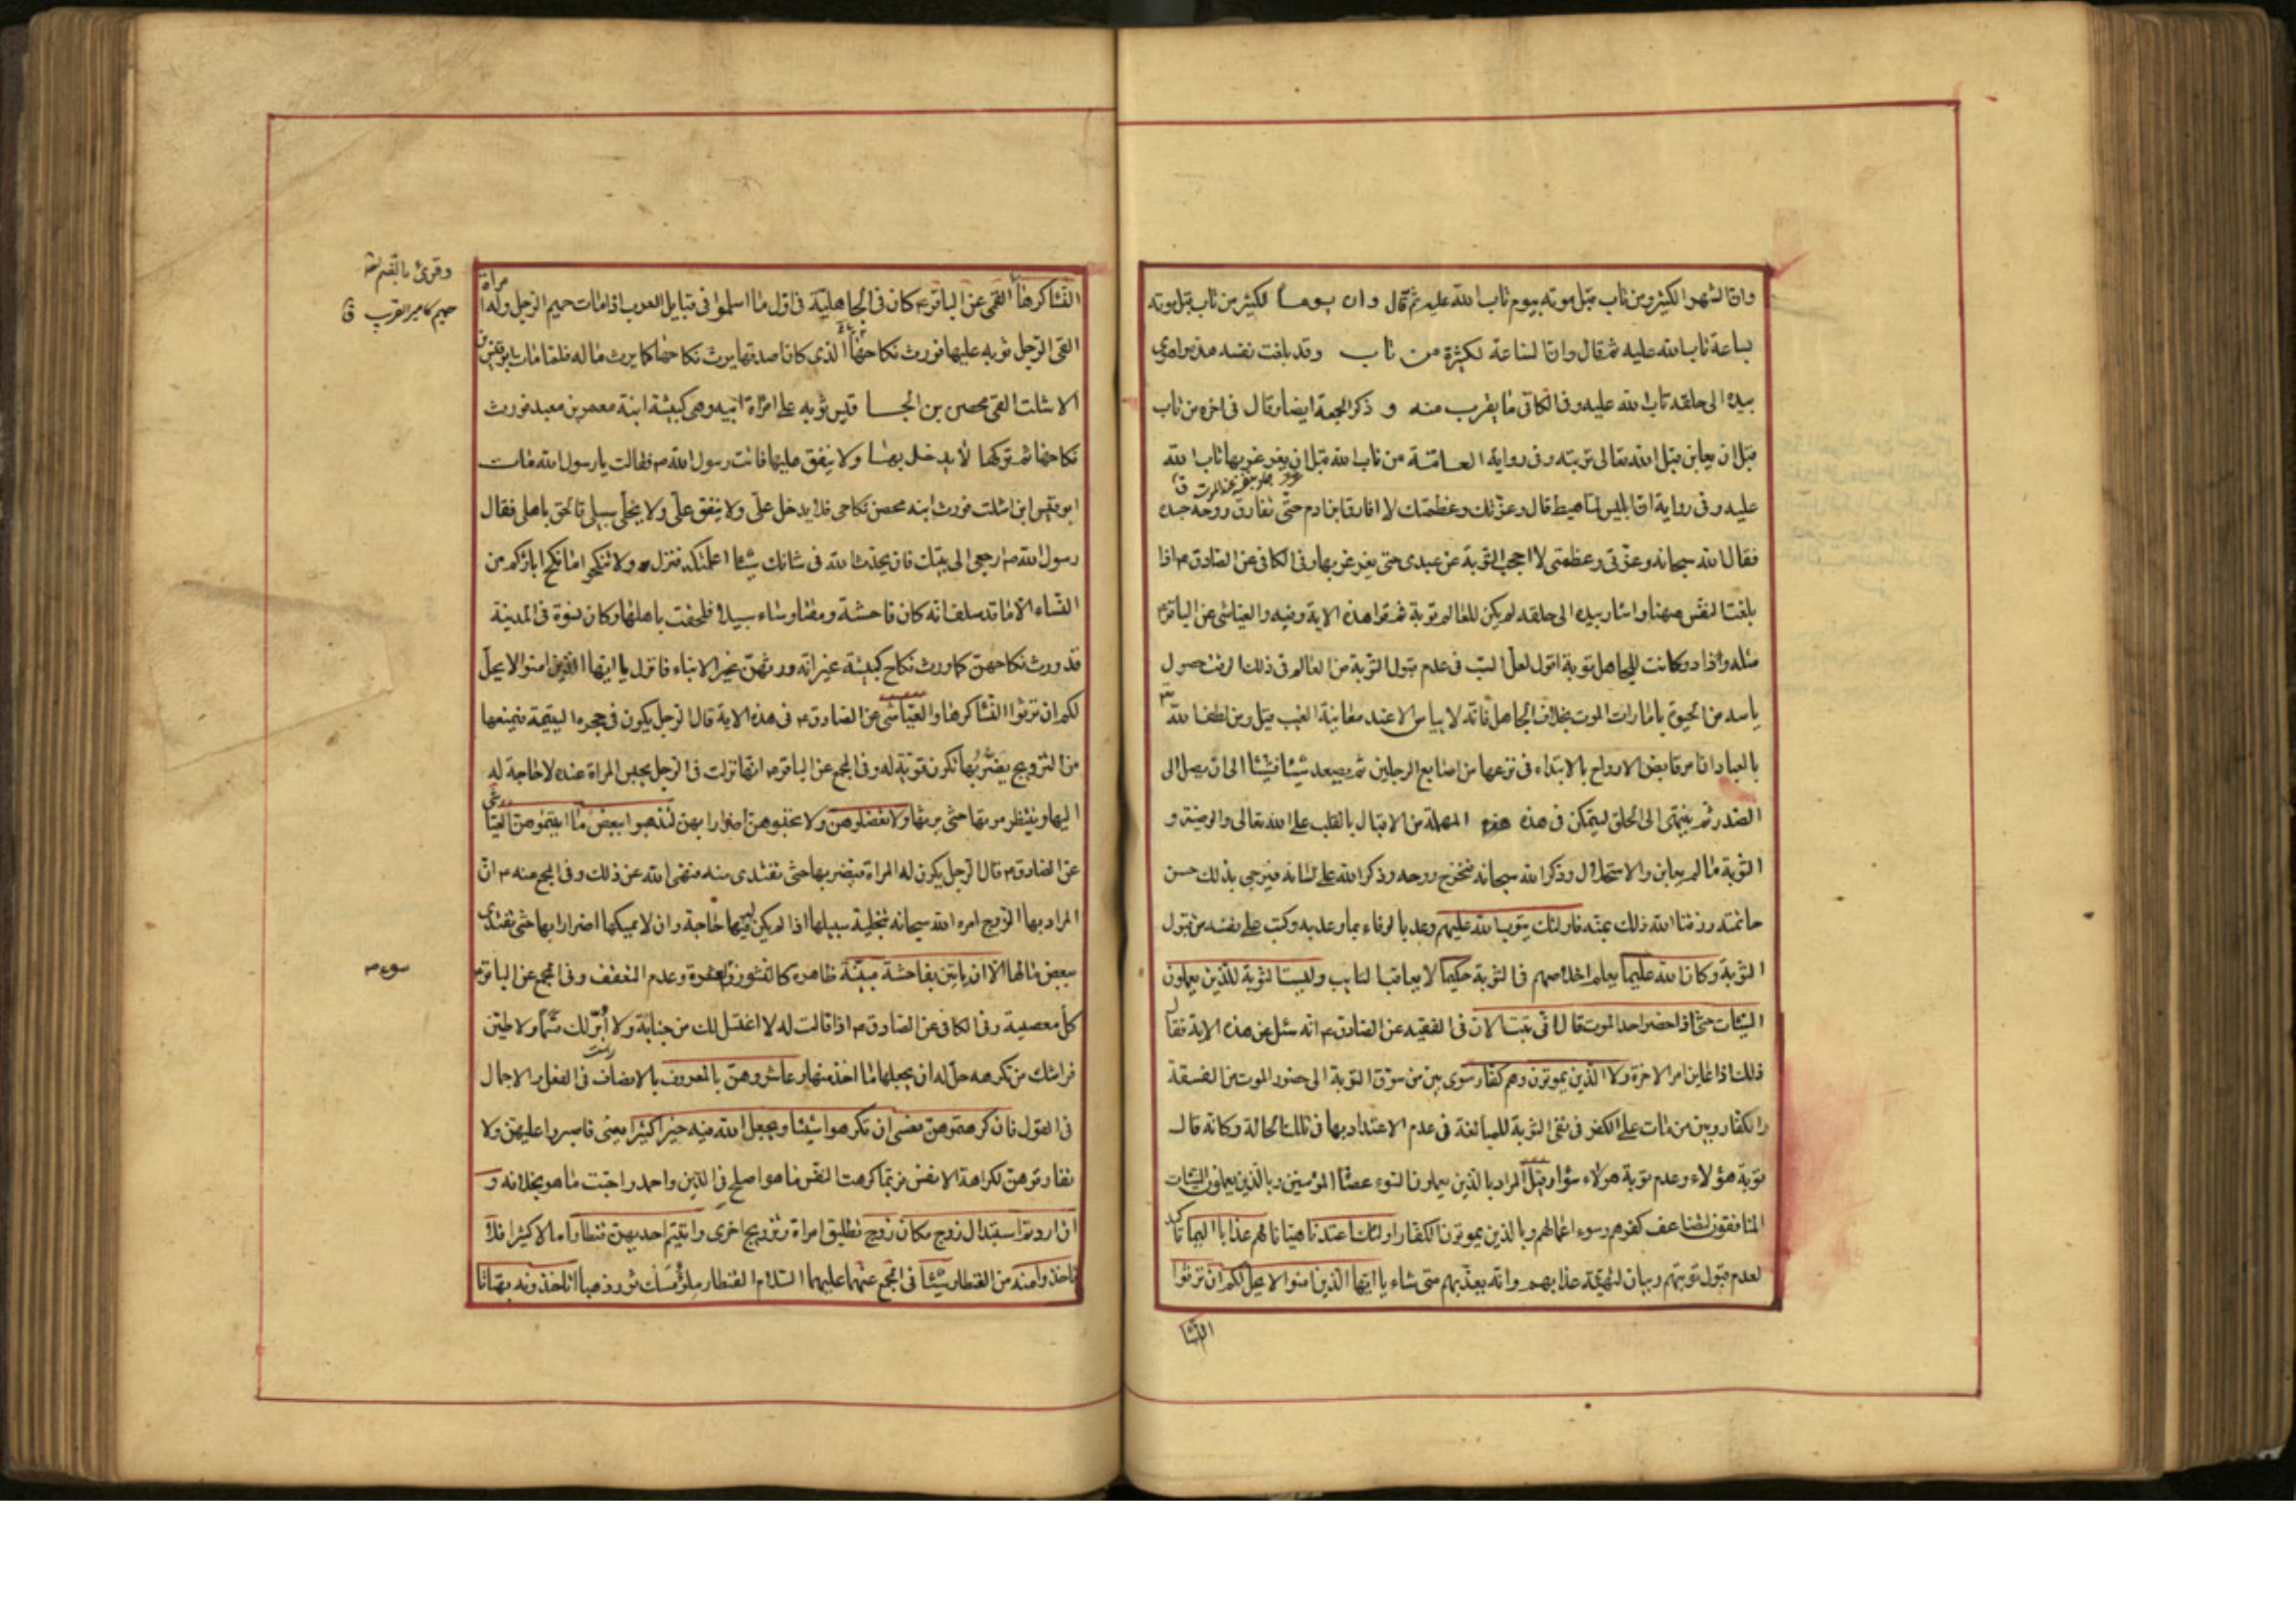 وان الشهر الكثير ومن تاب قبل موته بيوم تاب الله عليه ثم قال وان يوما لكثير من تاب قبل موته
بساعة تاب الله عليه ثم قال وان الساعة لكثيرة من تاب وقد بلغت نفسه هذه واهوى
بيده الى حلقه تاب الله عليه وفى الكافى ما يقرب منه و ذكر الجمعة ايضا وقال فى اخره من تاب
قبل ان يعاين قبل الله تعالى توبته وفى رواية العامة من تاب الله قبل ان يغرغر بها تاب الله
عليه وفى رواية ان ابليس لما هبط قال وعزتك وعظمتك لا افارق ابن ادم حتى تفارق روحه جسده
فقال الله سبحانه وعزتى وعظمتى لا احجب التوبة عن عبدى حتى يغرغر بها وفى الكافى عن الصادق ع اذا
بلغت النفس ههنا واشار بيده الى حلقه لم يكن للعالم توبة ثم قرا هذه الاية وفيه والعياشى عن الباقر ع
مثله وزاد وكانت للجاهل توبة اقول لعل السبب فى عدم قبول التوبة من العالم فى ذلك الوقت حصول
ياسه من الحيوة بامارات الموت بخلاف الجاهل فانه لا يياس الا عند معاينة الغيب قيل ومن لطف الله
بالعباد ان امر قابض الارواح بالابتداء فى نزعها من اصابع الرجلين ثم يصعد شيئا فشيئا الى ان يصل الى
الصدر ثم ينتهى الى الحلق ليتمكن فى هذه المهلة من الاقبال بالقلب على الله تعالى والوصية و
التوبة ما لم يعاين والاستحلال وذكر الله سبحانه فتخرج روحه وذكر الله على لسانه فيرجى بذلك حسن
خاتمته رزقنا الله ذلك بمنه فاولئك يتوب الله عليهم وعد بالوفاء بما وعد به وكتب على نفسه من قبول
التوبة وكان الله عليما يعلم اخلاصهم فى التوبة حكيما لا يعاقب التايب وليست التوبة للذين يعملون
السيئات حتى اذا حضر احدهم الموت قال انى تبت الان فى الفقيه عن الصادق ع انه سئل عن هذه الاية فقال
ذلك اذا عاين امر الاخرة ولا الذين يموتون وهم كفار سوى بين من سوّف التوبة الى حضور الموت من الفسقة
والكفار وبين من مات على الكفر فى نفى التوبة للمبالغة فى عدم الاعتداد بها فى تلك الحالة وكانه قال
توبة هؤلاء وعدم توبة هؤلاء سواء وقيل المراد بالذين يعملون السوء عصاة المؤمنين وبالذين يعملون السيئات
المنافقون لتضاعف كفرهم وسوء اعمالهم وبالذين يموتون الكفار اولئك اعتدنا هيئنا لهم عذابا اليما تاكيد
لعدم قبول توبتهم وبيان لتهيئة عذابهم وانه يعذبهم متى شاء يا ايها الذين امنوا لا يحل لكم ان ترثوا
النسا
النسا كرها القمى عن الباقر ع كان فى الجاهلية فى اول ما اسلموا فى قبايل العرب اذا مات حميم الرجل وله امراة
القى الرجل ثوبه عليها فورث نكاحها الذى كان اصدقها يرث نكاحها كما يرث ماله فلما مات ابو قيس بن
الاسلت القى محصن بن ابى قيس ثوبه على امراة ابيه وهى كبيشة ابنة معمر بن معبد فورث
نكاحها ثم تركها لا يدخل بها ولا ينفق عليها فاتت رسول الله ص فقالت يا رسول الله مات
ابو قيس ابن اسلت فورث ابنه محصن نكاحى فلا يدخل علىّ ولا ينفق علىّ ولا يخلى سبيلى فالحق باهلى فقال
رسول الله ص ارجعى الى بيتك فان يحدث الله فى شانك شيئا اعلمتك فنزل ولا تنكحوا ما نكح اباؤكم من
النساء الا ما قد سلف انه كان فاحشة ومقتا وساء سبيلا فلحقت باهلها وكان نسوة فى المدينة
قد ورث نكاحهن كما ورث نكاح كبيشة غير انه ورثهن غير الابناء فانزل يا ايها الذين امنوا لا يحل
لكم ان ترثوا النسا كرها والعياشى عن الصادق ع فى هذه الاية قال الرجل يكون فى حجره اليتيمة فيمنعها
من التزويج يضر بها تكون قريبة له وفى المجمع عن الباقر ع انها نزلت فى الرجل يحبس المراة عنده لا حاجة له
اليها وينتظر موتها حتى يرثها ولا تعضلوهن ولا تحبسوهن اضرارا بهن لتذهبوا ببعض ما اتيتموهن العياشى
عن الصادق ع قال الرجل يكون له المراة فيضر بها حتى تفتدى منه فنهى الله عن ذلك وفى المجمع عنه ع ان
المراد بها الزوج امره الله سبحانه بتخلية سبيلها اذا لم يكن له فيها حاجة وان لا يمسكها اضرارا بها حتى تفتدى
ببعض مالها الا ان ياتين بفاحشة مبينة ظاهرة كالنشوز وسوء العشرة وعدم التعفف وفى المجمع عن الباقر ع
كل معصية وفى الكافى عن الصادق ع اذا قالت له لا اغتسل لك من جنابة ولا ابرّ لك قسما ولا وطين
فراشك من تكرهه حل له ان يخلعها ما اخذ منها وعاشروهن بالمعروف بالانصاف فى الفعل والاجمال
فى القول فان كرهتموهن فعسى ان تكرهوا شيئا ويجعل الله فيه خيرا كثيرا يعنى فاصبروا عليهن ولا
تفارقوهن لكراهة الانفس فربما كرهت النفس ما هو اصلح فى الدين واحمد واحبت ما هو بخلافه و
ان اردتم استبدال زوج مكان زوج تطليق امراة وتزويج اخرى واتيتم احديهن قنطارا مالا كثيرا فلا
تاخذوا منه من القنطار شيئا فى المجمع عنهما عليهما السلام القنطار ملؤ مسك ثور ذهبا اتاخذونه بهتانا
وقرئ بالضم لغة
حميم كامير القريب ق